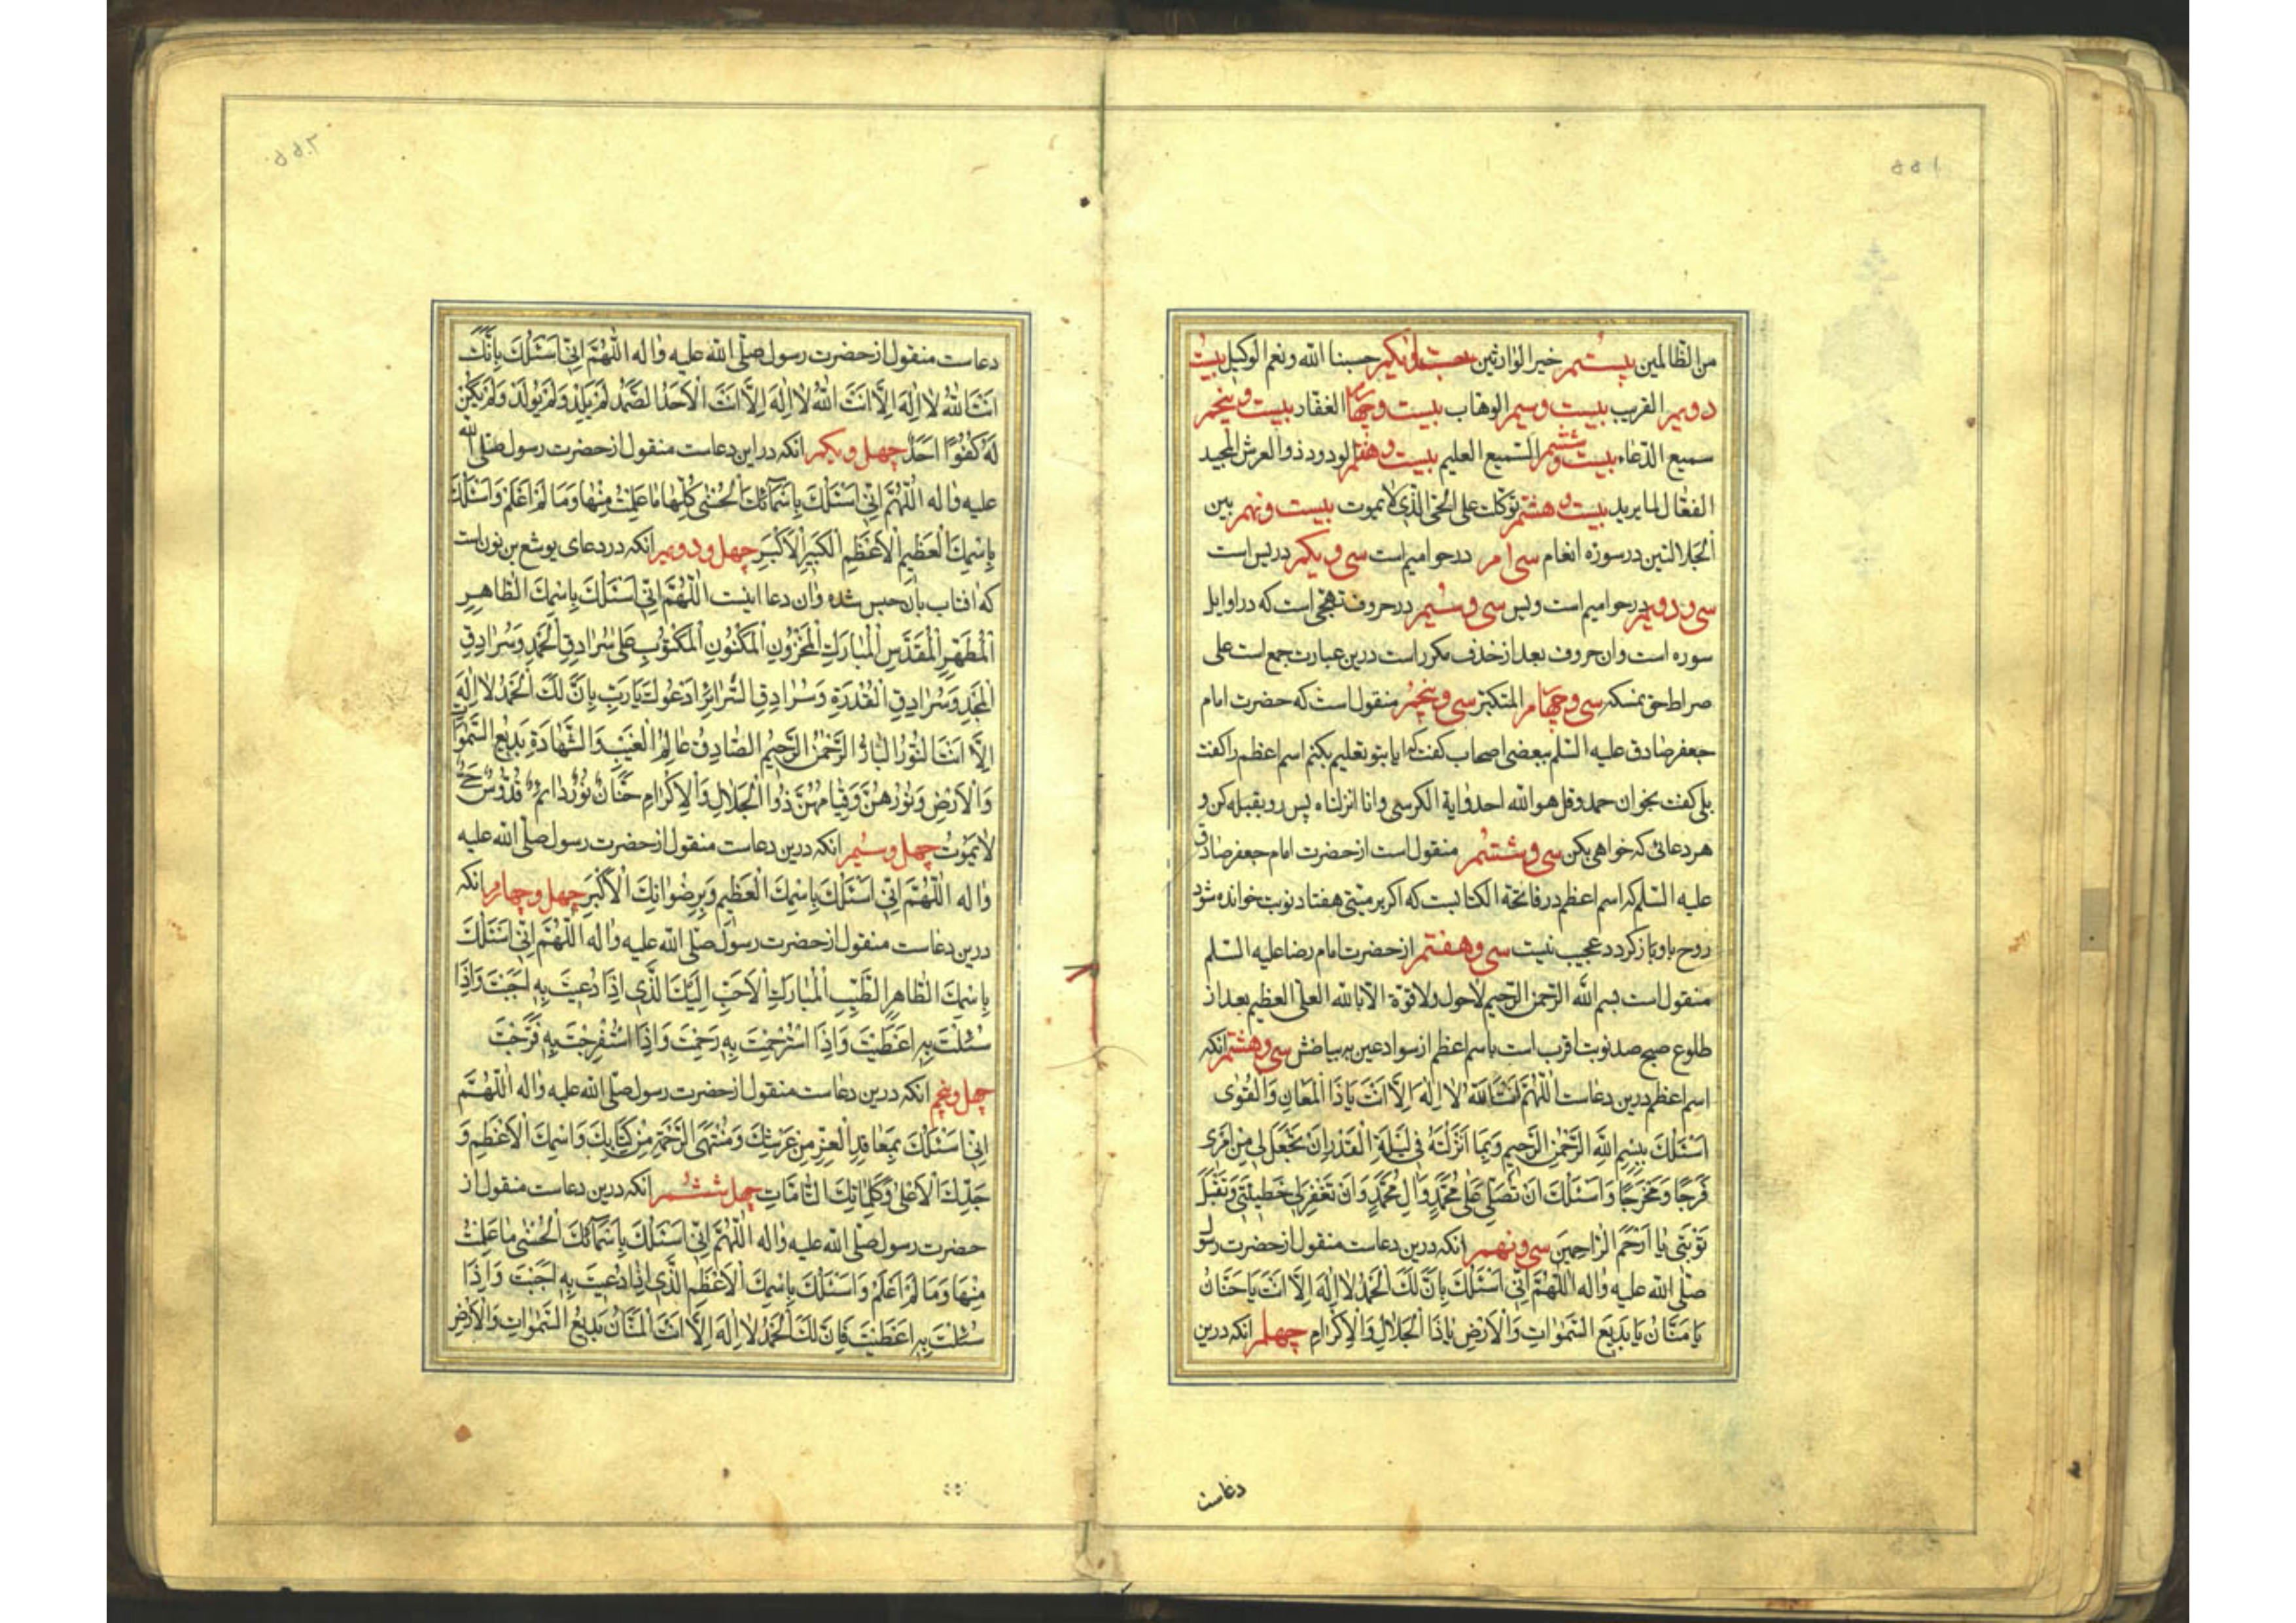 ۵۵۱
من الظالمین بیستم خیر الوارثین بیست و یکم حسبنا الله و نعم الوکیل بیست
دویم القریب بیست و سیم الوهاب بیست و چهارم الغفار بیست و پنجم
سمیع الدعاء بیست و ششم السمیع العلیم بیست و هفتم الودود ذوالعرش المجید
الفعّال لما یرید بیست و هشتم توکلت علی الحی الذی لا یموت بیست و نهم بین
الجلالتین در سوره انعام سی ام در حوامیم است سی و یکم در یس است
سی و دویم در حوامیم است و یس سی و سیم در حروف تهجّی است که در اوایل
سوره است و ان حروف بعد از حذف مکرر است درین عبارت جمع است علی
صراط حق نمسکه سی و چهارم المتکبر سی و پنجم منقول است که حضرت امام
جعفر صادق علیه السلم ببعضی اصحاب کفت که ایا بتو تعلیم بکنم اسم اعظم را کفت
بلی کفت بخوان حمد و قل هو الله احد و ایة الکرسی و انا انزلناه پس رو بقبله کن و
هر دعائی که خواهی بکن سی و ششم منقول است از حضرت امام جعفر صادق
علیه السلم که اسم اعظم در فاتحة الکتابست که اکر بر میتی هفتاد نوبت خوانده شود
روح باو باز کردد عجیب نیست سی و هفتم از حضرت امام رضا علیه السلم
منقول است بسم الله الرحمن الرحیم لا حول و لا قوة الا بالله العلی العظیم بعد از
طلوع صبح صد نوبت اقرب است باسم اعظم از سواد عین به بیاضش سی و هشتم انکه
اسم اعظم درین دعاست اَللّهُمَّ اَنْتَ اللهُ لا اِلهَ اِلاّ اَنْتَ یا ذَا الْمَعانِ وَالْقُوی
اَسْئَلُکَ بِبِسْمِ اللهِ الرَّحْمنِ الرَّحیمِ وَبِما اَنْزَلْتَهُ فی لَیْلَةِ الْقَدْرِ اَنْ تَجْعَلَ لی مِنْ اَمْری
فَرَجًا وَ مَخْرَجًا وَ اَسْئَلُکَ اَنْ تُصَلِّیَ عَلی مُحَمَّدٍ وَ الِ مُحَمَّدٍ وَ اَنْ تَغْفِرَ لی خَطیئَتی وَ تَقْبَلَ
تَوْبَتی یا اَرْحَمَ الرّاحِمینَ سی و نهم انکه درین دعاست منقول از حضرت رسول
صلّی الله علیه و اله اَللّهُمَّ اِنّی اَسْئَلُکَ بِاَنَّ لَکَ الْحَمْدُ لا اِلهَ اِلاّ اَنْتَ یا حَنّانُ
یا مَنّانُ یا بَدیعَ السَّمواتِ وَ الْاَرْضِ یا ذَا الْجَلالِ وَ الْاِکْرامِ چهلم انکه درین
دعاست
۵۵۲
دعاست منقول از حضرت رسول صلّی الله علیه و اله اَللّهُمَّ اِنّی اَسْئَلُکَ بِاَنَّکَ
اَنْتَ اللهُ لا اِلهَ اِلاّ اَنْتَ اللهُ لا اِلهَ اِلاّ اَنْتَ الْاَحَدُ الصَّمَدُ لَمْ یَلِدْ وَ لَمْ یُولَدْ وَ لَمْ یَکُنْ
لَهُ کُفُوًا اَحَدٌ چهل و یکم انکه در این دعاست منقول از حضرت رسول صلّی الله
علیه و اله اَللّهُمَّ اِنّی اَسْئَلُکَ بِاَسْمآئِکَ الْحُسْنی کُلِّها ما عَلِمْتُ مِنْها وَ ما لَمْ اَعْلَمْ وَ اَسْئَلُکَ
بِاِسْمِکَ الْعَظیمِ الْاَعْظَمِ الْکَبیرِ الْاَکْبَرِ چهل و دویم انکه در دعای یوشع بن نون است
که افتاب بان حبس شده و ان دعا اینست اَللّهُمَّ اِنّی اَسْئَلُکَ بِاسْمِکَ الطّاهِرِ
الْمُطَهَّرِ الْمُقَدَّسِ الْمُبارَکِ الْمَخْزُونِ الْمَکْنُونِ الْمَکْتُوبِ عَلی سُرادِقِ الْحَمْدِ وَ سُرادِقِ
الْمَجْدِ وَ سُرادِقِ الْقُدْرَةِ وَ سُرادِقِ السَّرائِرِ اَدْعُوکَ یا رَبِّ بِاَنَّ لَکَ الْحَمْدُ لا اِلهَ
اِلاّ اَنْتَ النُّورُ الْبارُّ الرَّحْمنُ الرَّحیمُ الصّادِقُ عالِمُ الْغَیْبِ وَ الشَّهادَةِ بَدیعُ السَّمواتِ
وَ الْاَرْضِ وَ نُورُهُنَّ وَ قِیامُهُنَّ ذُوا الْجَلالِ وَ الْاِکْرامِ حَنّانٌ نُورٌ دائِمٌ قُدُّوسٌ حَیٌّ
لا یَمُوتُ چهل و سیم انکه درین دعاست منقول از حضرت رسول صلّی الله علیه
و اله اَللّهُمَّ اِنّی اَسْئَلُکَ بِاسْمِکَ الْعَظیمِ وَ بِرِضْوانِکَ الْاَکْبَرِ چهل و چهارم انکه
درین دعاست منقول از حضرت رسول صلّی الله علیه و اله اَللّهُمَّ اِنّی اَسْئَلُکَ
بِاسْمِکَ الطّاهِرِ الطَّیِّبِ الْمُبارَکِ الْاَحَبِّ اِلَیْکَ الَّذی اِذا دُعیتَ بِه اَجَبْتَ وَ اِذا
سُئِلْتَ بِه اَعْطَیْتَ وَ اِذَا اسْتُرْحِمْتَ بِه رَحِمْتَ وَ اِذَا اسْتُفْرِجْتَ بِه فَرَّجْتَ
چهل و پنجم انکه درین دعاست منقول از حضرت رسول صلّی الله علیه و اله اَللّهُمَّ
اِنّی اَسْئَلُکَ بِمَعاقِدِ الْعِزِّ مِنْ عَرْشِکَ وَ مُنْتَهَی الرَّحْمَةِ مِنْ کِتابِکَ وَ اسْمِکَ الْاَعْظَمِ وَ
جَدِّکَ الْاَعْلی وَ کَلِماتِکَ التّامّاتِ چهل ششم انکه درین دعاست منقول از
حضرت رسول صلّی الله علیه و اله اَللّهُمَّ اِنّی اَسْئَلُکَ بِاَسْمآئِکَ الْحُسْنی ما عَلِمْتُ
مِنْها وَ ما لَمْ اَعْلَمْ وَ اَسْئَلُکَ بِاسْمِکَ الْاَعْظَمِ الَّذی اِذا دُعیتَ بِه اَجَبْتَ وَ اِذا
سُئِلْتَ بِه اَعْطَیْتَ فَاِنَّ لَکَ الْحَمْدُ لا اِلهَ اِلاّ اَنْتَ الْمَنّانُ بَدیعُ السَّمواتِ وَ الْاَرْضِ